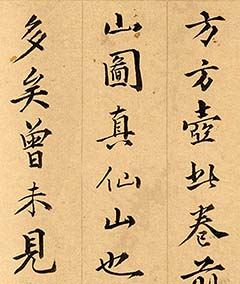 方方壺此卷前
山圖真仙山也
多矣曾未見